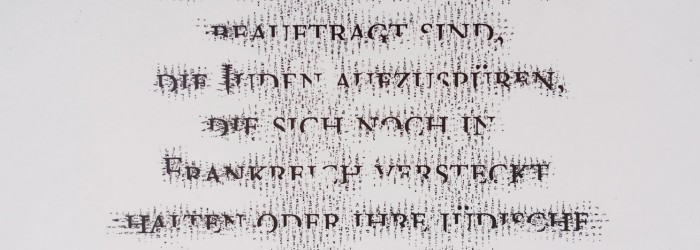 BEAUFTRAGT SIND,
DIE JUDEN AUFZUSPÜREN,
DIE SICH NOCH IN
FRANKREICH VERSTECKT
HALTEN ODER IHRE JÜDISCHE